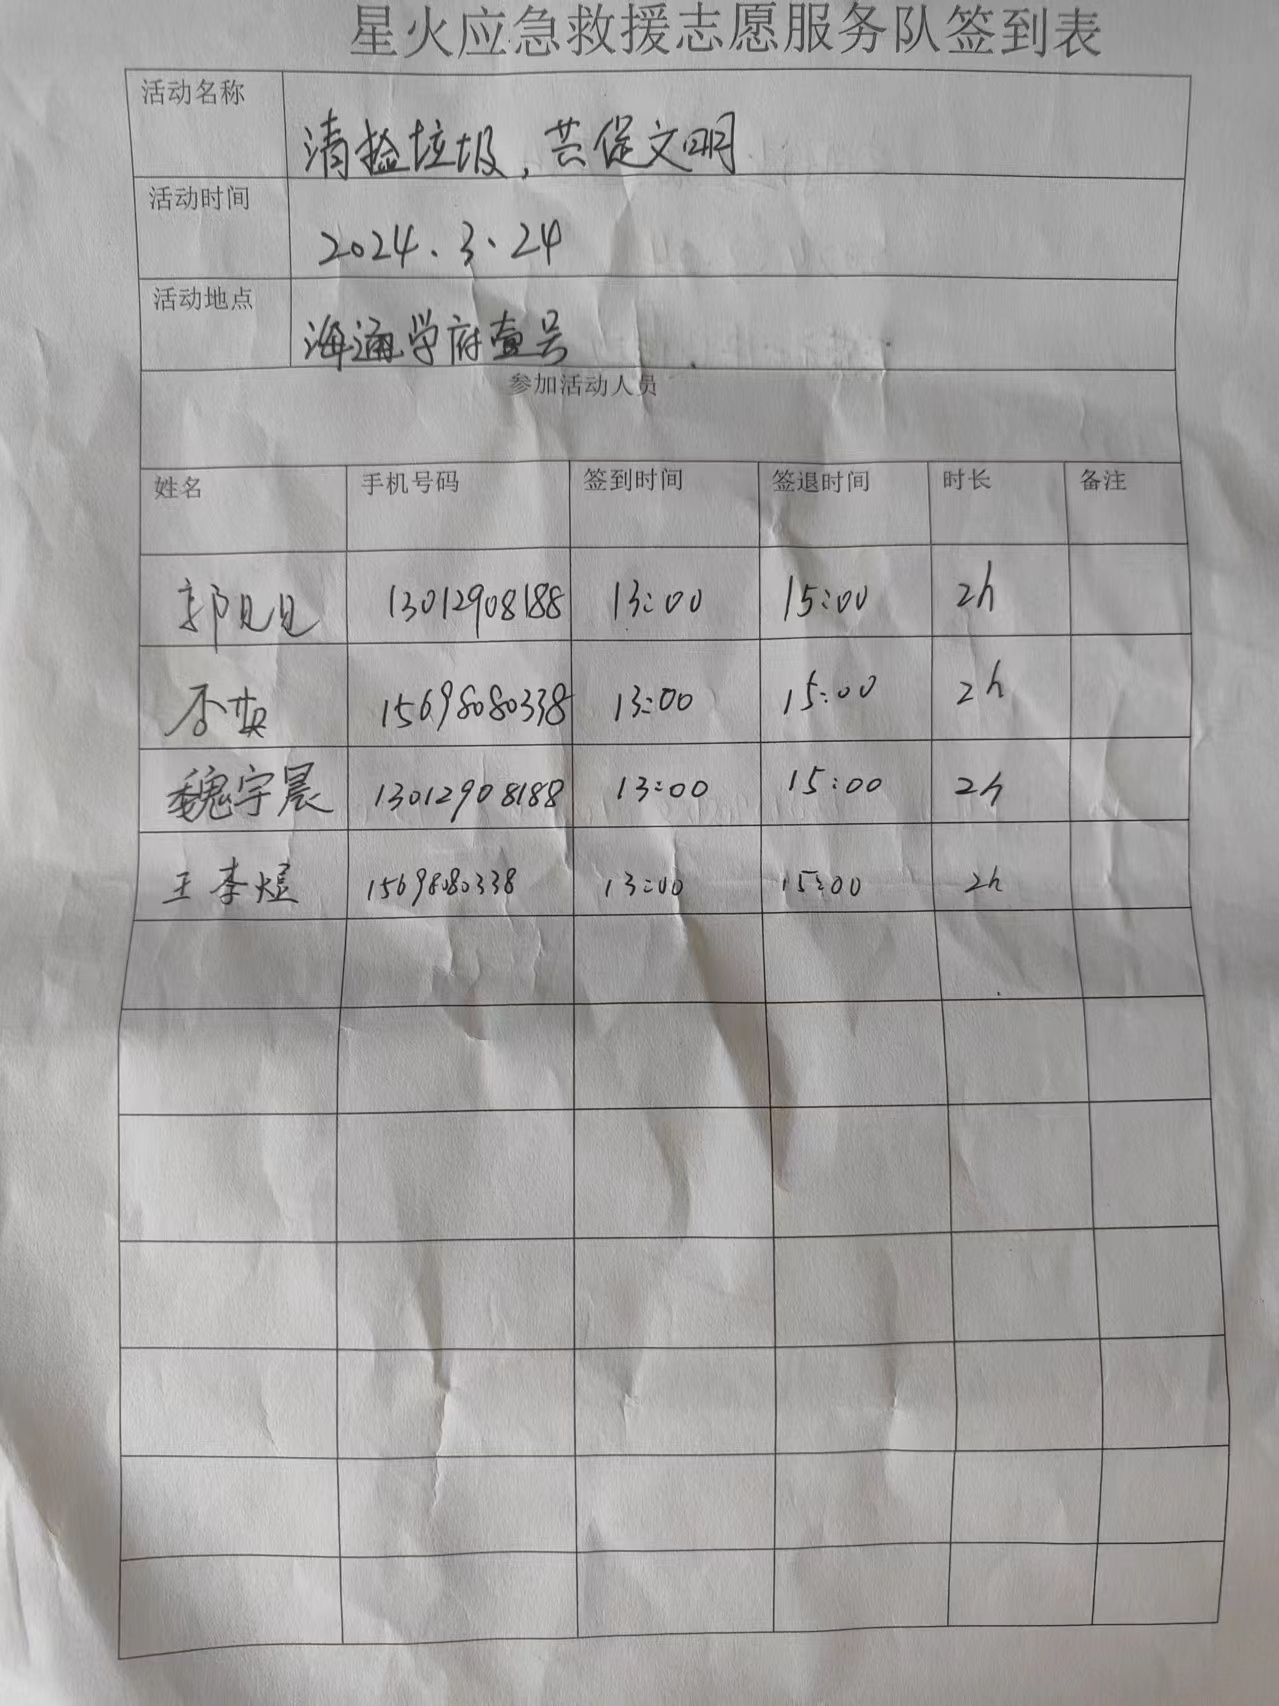 星火应急救援志愿服务队签到表
活动名称 清捡垃圾，共促文明
活动时间 2024.3.24
活动地点 海通学府壹号
参加活动人员
姓名 手机号码 签到时间 签退时间 时长 备注
郭见见 13012908188 13:00 15:00 2h
李英 15698080338 13:00 15:00 2h
魏宇晨 13012908188 13:00 15:00 2h
王李煜 15698080338 13:00 15:00 2h